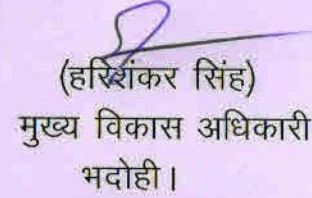 (हरिशंकर सिंह)
मुख्य विकास अधिकारी
भदोही।